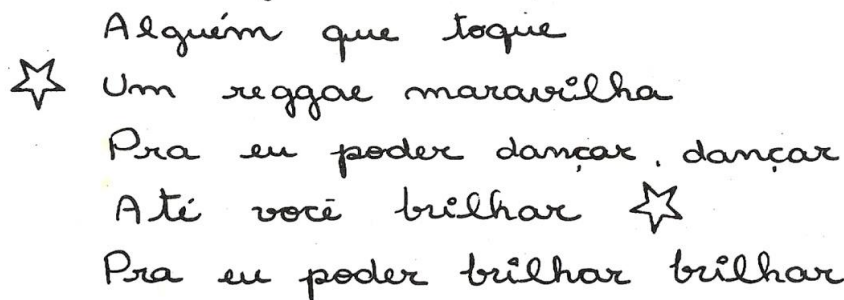 Alguém que toque
Um reggae maravilha
Pra eu poder dançar, dançar
Até você brilhar
Pra eu poder brilhar brilhar